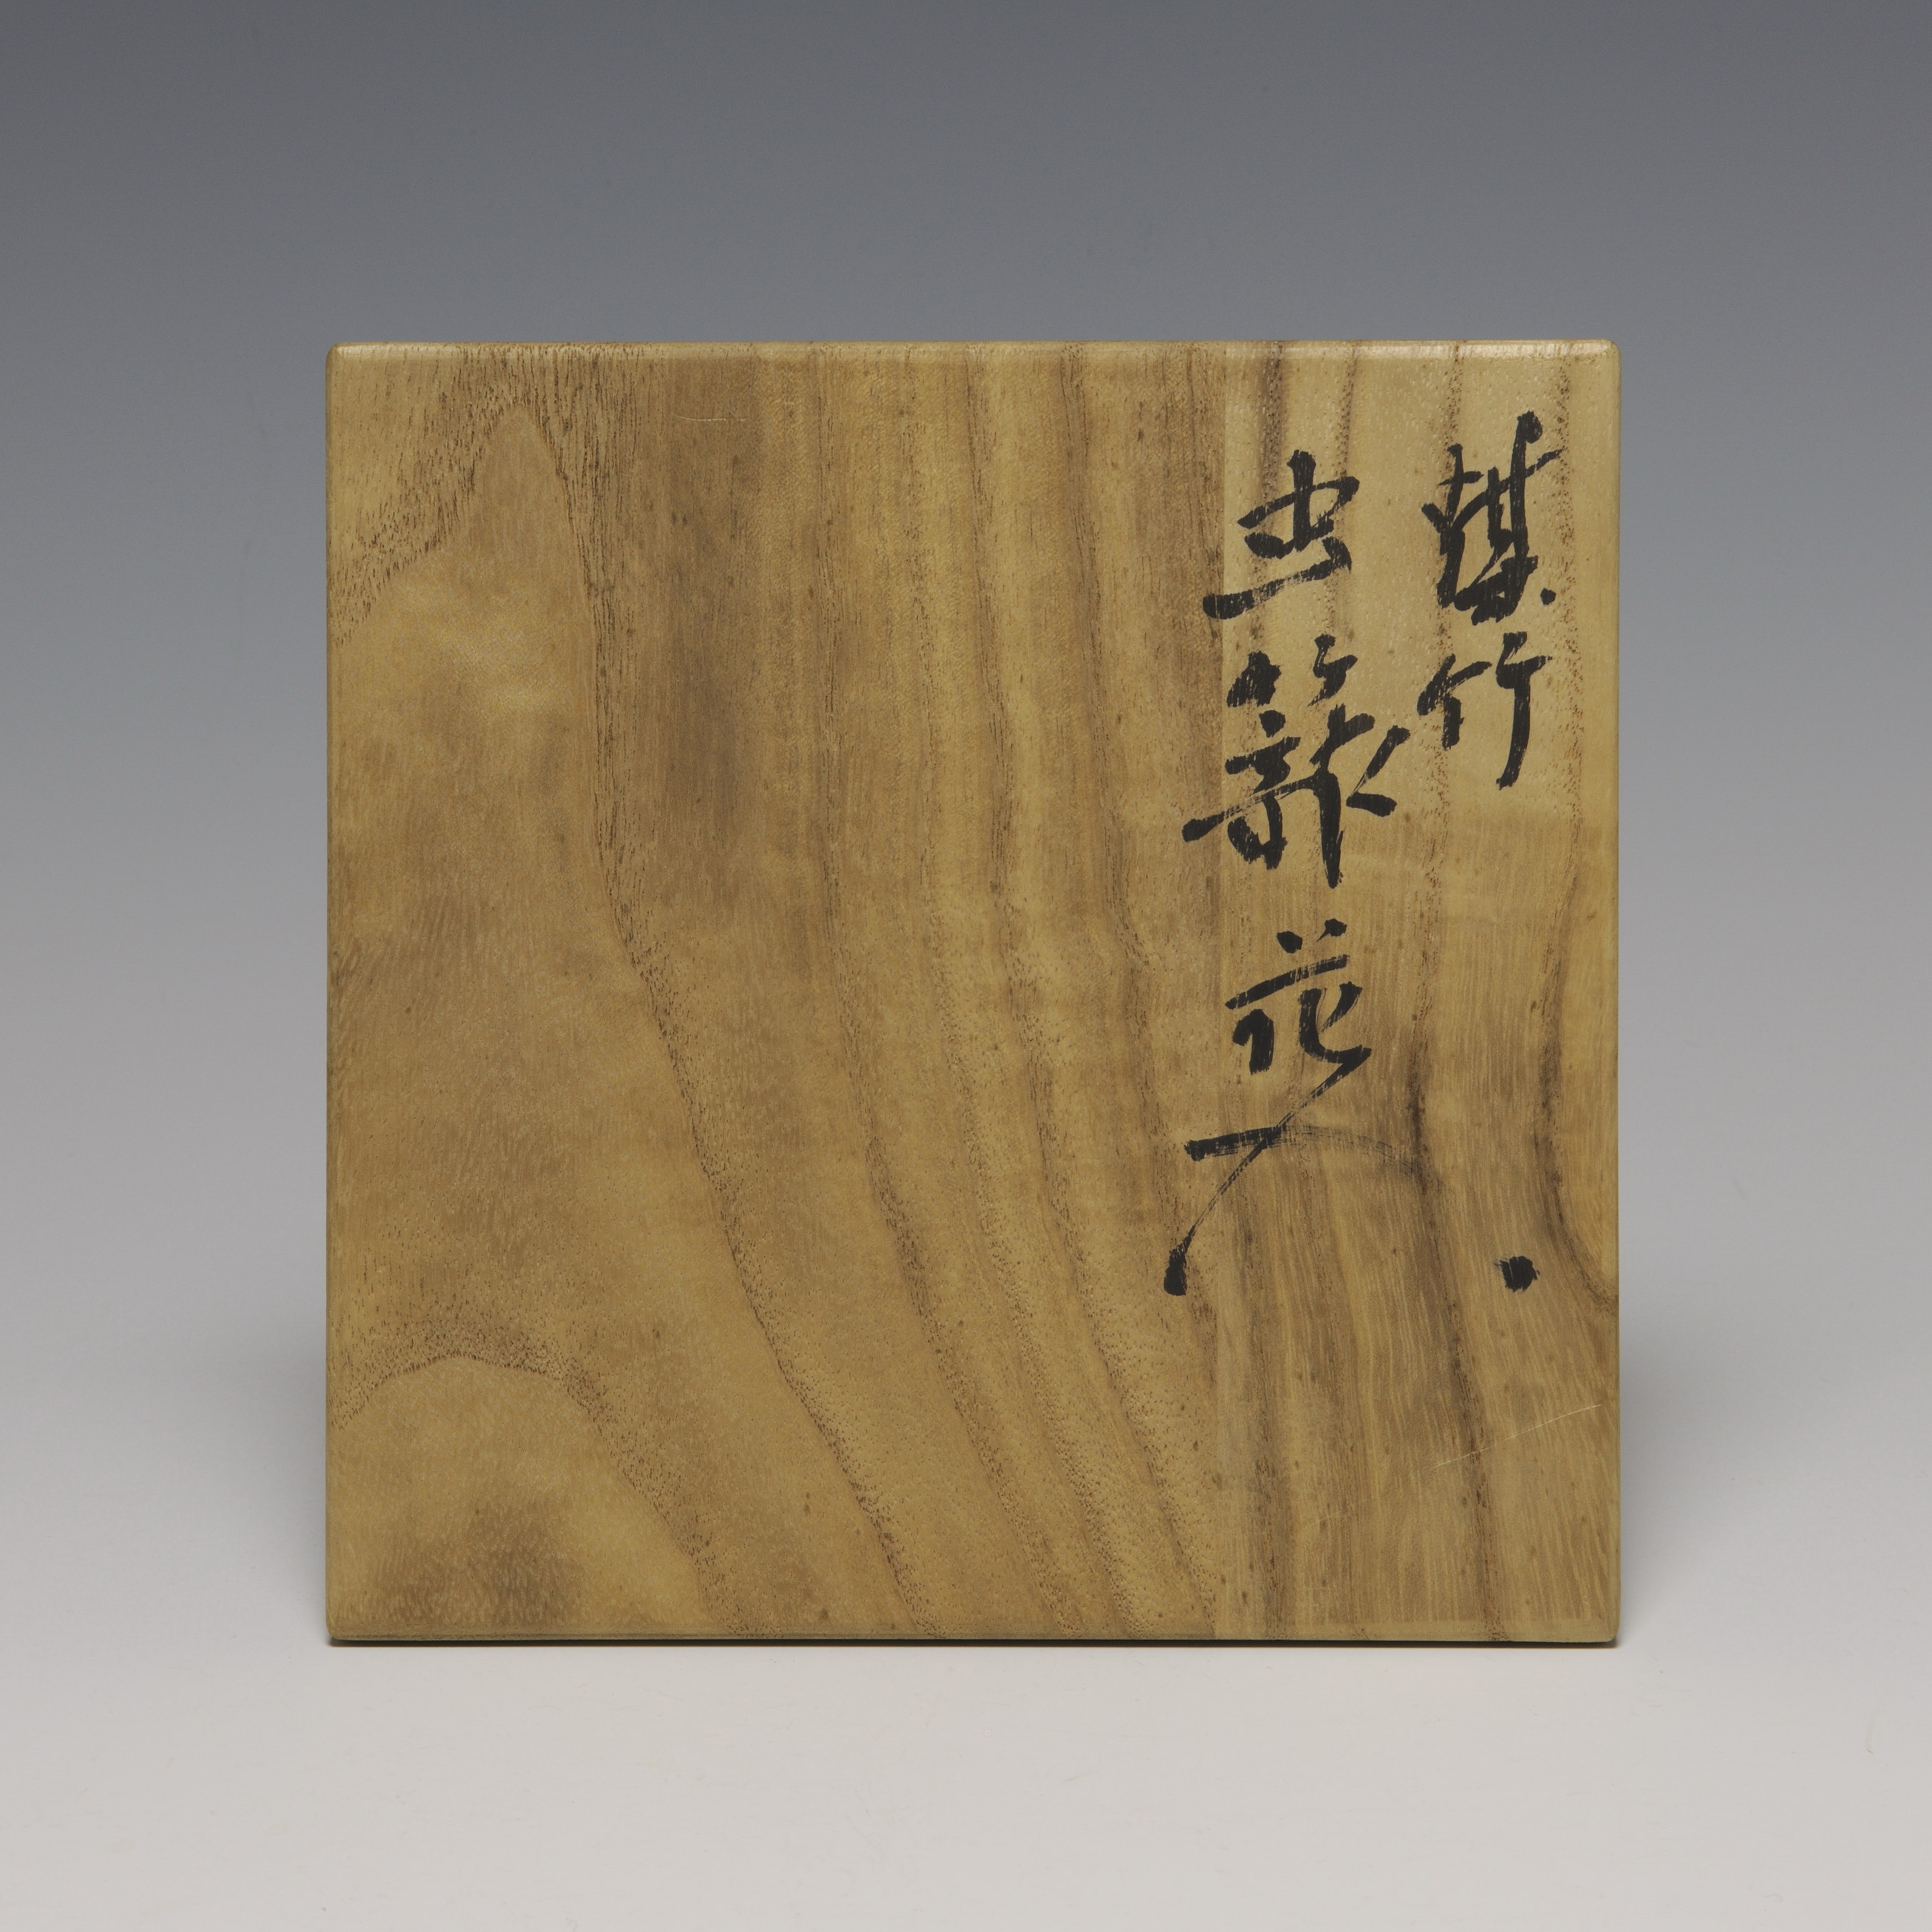 煤竹
虫籠花入